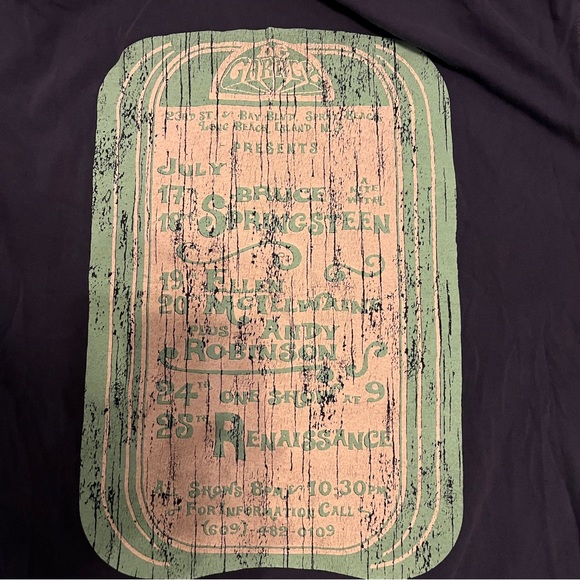 LE GARAGE
23RD ST. & BAY BLVD. SPRAY BEACH
LONG BEACH ISLAND N.J.
PRESENTS
JULY
17 BRUCE A NITE WITH
18 SPRINGSTEEN
19 ELLEN
20 McILLWAINE
PLUS ANDY
ROBINSON
24TH ONE SHOW AT 9
25TH RENAISSANCE
ALL SHOWS 8PM & 10:30PM
FOR INFORMATION CALL
(609)-492-0109